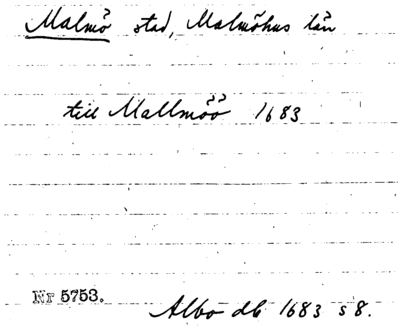 Malmö stad, Malmöhus län
till Mallmöö 1683
Nr 5753.
Albo db 1683 s 8.